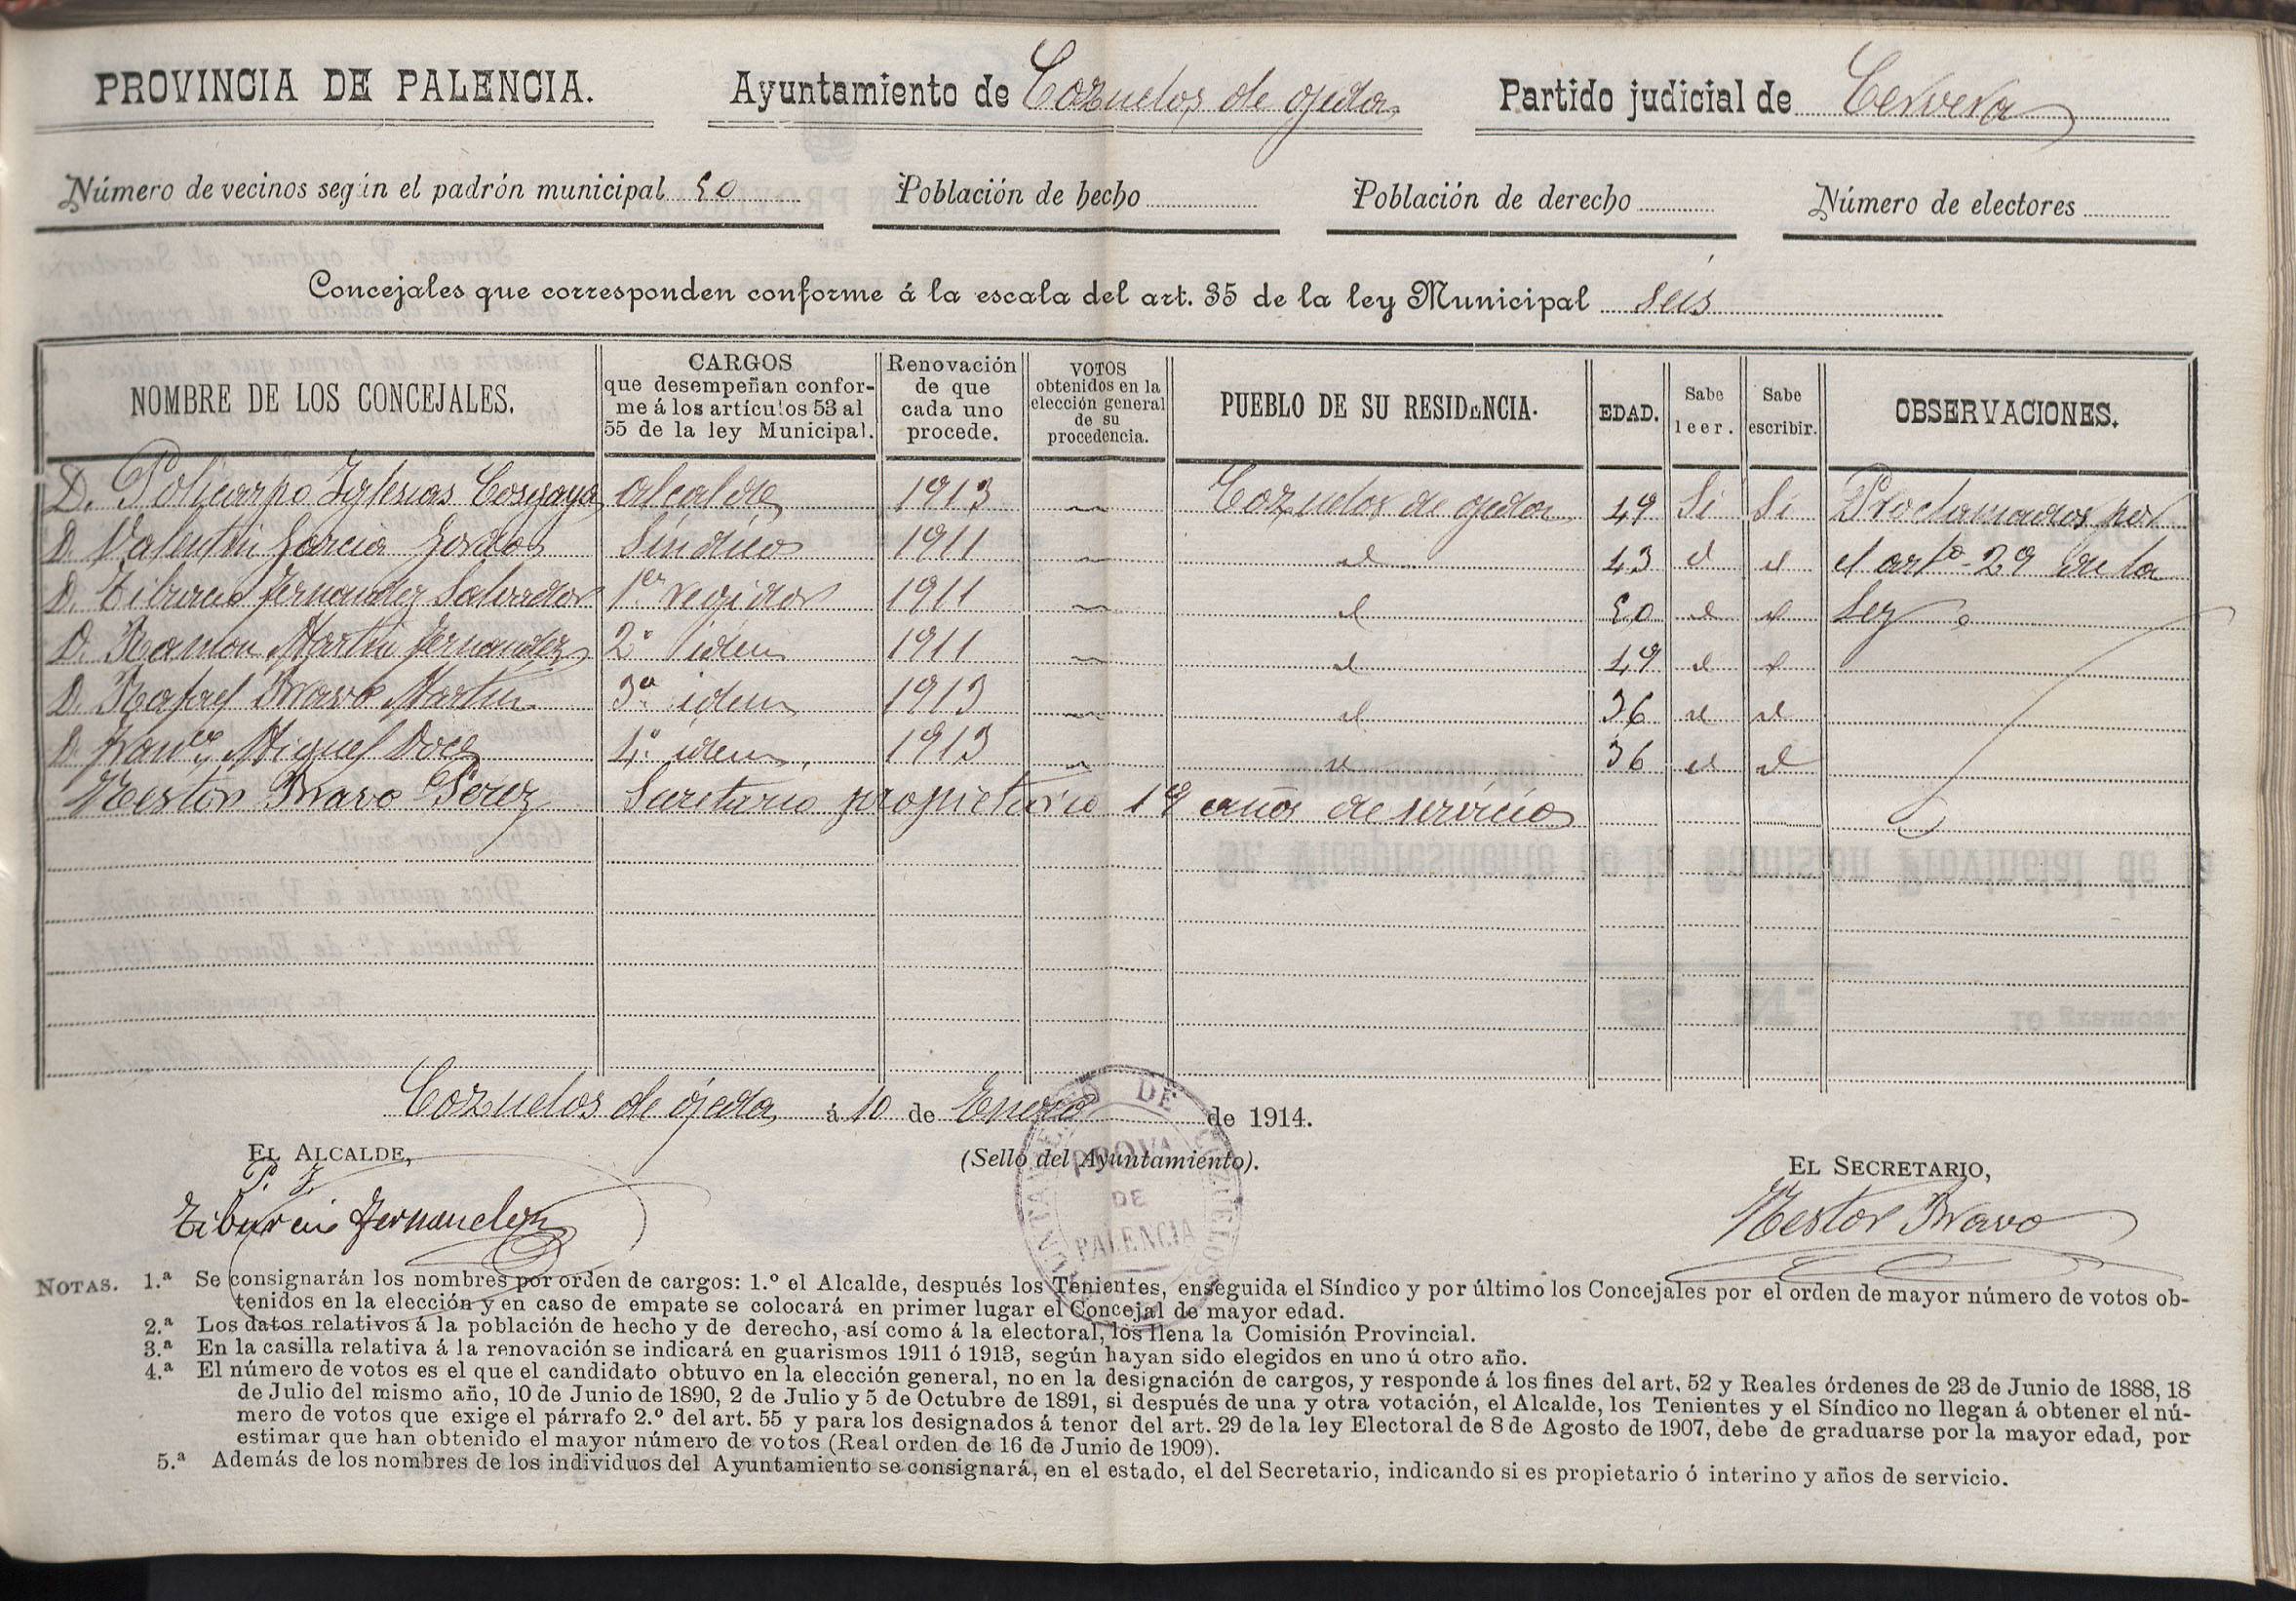 PROVINCIA DE PALENCIA. Ayuntamiento de Cozuelos de ojeda Partido judicial de Cervera
Número de vecinos según el padrón municipal 50 Población de hecho Población de derecho Número de electores
Concejales que corresponden conforme á la escala del art. 35 de la ley Municipal seis
NOMBRE DE LOS CONCEJALES. CARGOS que desempeñan conforme á los artículos 53 al 55 de la ley Municipal. Renovación de que cada uno procede. VOTOS obtenidos en la elección general de su procedencia. PUEBLO DE SU RESIDENCIA. EDAD. Sabe leer. Sabe escribir. OBSERVACIONES.
D. Policarpo Iglesias Cosgaya alcalde 1913 Cozuelos de ojeda 49 Si Si Proclamados por
D. Valentin Garcia Síndico 1911 id 43 id id el artº 29 de la
D. Tiburcio Fernandez Salvador 1er regidor 1911 id 50 id id Ley
D. Ramon Martin Fernandez 2º idem 1911 id 49 id id
D. Rafael Bravo Martin 3º idem 1913 id 36 id id
D. Franco Miguel 4º idem 1913 id 36 id id
Nestor Bravo Perez Secretario propietario 19 años de servicio
Cozuelos de ojeda á 10 de Enero de 1914.
EL ALCALDE, (Sello del Ayuntamiento). EL SECRETARIO,
Tiburcio Fernandez Nestor Bravo
AYUNTAMIENTO DE COZUELOS
PROVA
DE
PALENCIA
NOTAS. 1.ª Se consignarán los nombres por orden de cargos: 1.º el Alcalde, después los Tenientes, enseguida el Síndico y por último los Concejales por el orden de mayor número de votos ob-
tenidos en la elección y en caso de empate se colocará en primer lugar el Concejal de mayor edad.
2.ª Los datos relativos á la población de hecho y de derecho, así como á la electoral, los llena la Comisión Provincial.
3.ª En la casilla relativa á la renovación se indicará en guarismos 1911 ó 1913, según hayan sido elegidos en uno ú otro año.
4.ª El número de votos es el que el candidato obtuvo en la elección general, no en la designación de cargos, y responde á los fines del art. 52 y Reales órdenes de 23 de Junio de 1888, 18
de Julio del mismo año, 10 de Junio de 1890, 2 de Julio y 5 de Octubre de 1891, si después de una y otra votación, el Alcalde, los Tenientes y el Síndico no llegan á obtener el nú-
mero de votos que exige el párrafo 2.º del art. 55 y para los designados á tenor del art. 29 de la ley Electoral de 8 de Agosto de 1907, debe de graduarse por la mayor edad, por
estimar que han obtenido el mayor número de votos (Real orden de 16 de Junio de 1909).
5.ª Además de los nombres de los individuos del Ayuntamiento se consignará, en el estado, el del Secretario, indicando si es propietario ó interino y años de servicio.